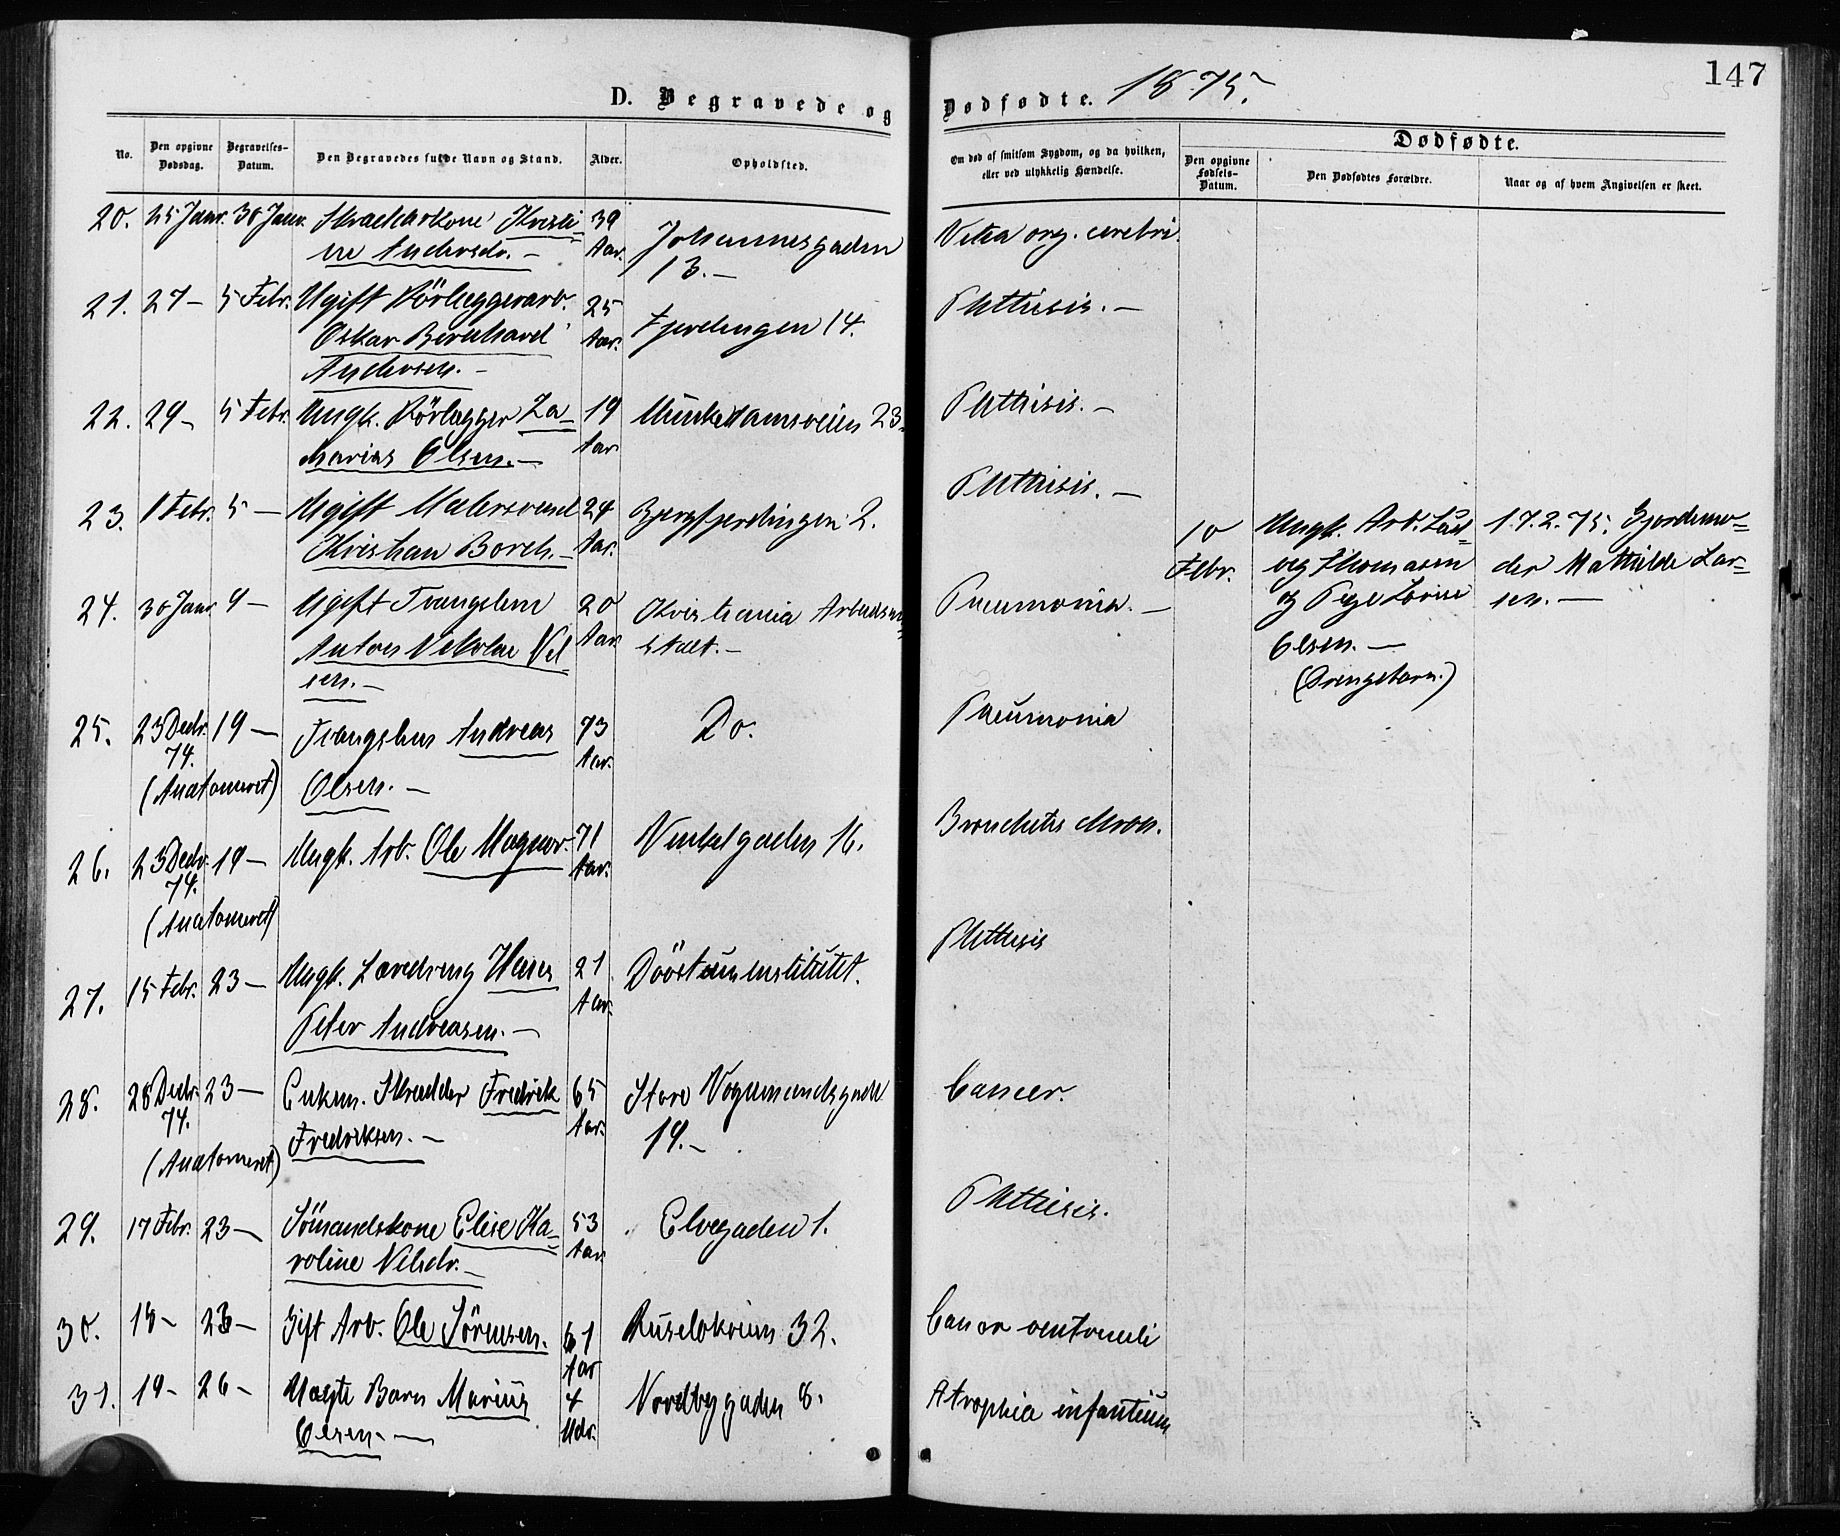 147
D. Begravede og Dødfødte. 1875.
No.
Den opgivne Dødsdag.
Begravelses-Datum.
Den Begravedes fulde Navn og Stand.
Alder.
Opholdsted.
Om død af smitsom Sygdom, og da hvilken,
eller ved ulykkelig Hændelse.
Dødfødte.
Den opgivne Fødsels-Datum.
Den Dødfødtes Forældre.
Naar og af hvem Angivelsen er skeet.
20. 25 Janr. 30 Janr. Skrædderkone Kristi- 39 Johannesgaden Vitia org. cerebri.
ne Andersdr. — Aar. 13. —
21. 27 — 5 Febr. Ugift Rörlæggerarb. 25 Fjerdingen 14. Phthisis. —
Oskar Bernhard Aar.
Andersen. —
22. 29 — 5 Febr. Ungk. Rörlægger Za- 19 Munkedamsveien 23. Phthisis. —
Marius Olsen. — Aar
23. 1 Febr. 5 — Ugift Malersvend 24 Bjergfjerdingen 2. Phthisis. —
Kristian Borch. — Aar.
10 Ungk. Arb. Lud- 17.2.75. Gjordemo-
Febr. vig Thomasen der Mathilde Lar-
og Pige Lovise sen. —
Olsen. —
(Drengebarn.)
24. 30 Janr. 9 — Ugift Tvangslem 20 Kristiania Arbeidsan- Pneumonia. —
Anton Nikolai Nil- Aar stalt. —
sen. —
25. 23 Decbr. 19 — Tvangslem Andreas 73 Do. Pneumonia
74. Aar.
(Anatomeret) Olsen. —
26. 23 Decbr. 19 — Ungk. Arb. Ole Magner. 71 Vinkelgaden 16. Bronchitis chron.
74. Aar.
(Anatomeret)
27. 15 Febr. 23 — Ungk. Læredreng Hans 21 Döostuminstitutet. Phthisis
Peter Andreasen. — Aar.
28. 28 Decbr. 23 — Enkem. Skrædder Fredrik 65 Store Vognmandsgade Cancer.
74. Aar.
(Anatomeret) Fredriksen. — 19. —
29. 17 Febr. 23 — Sömandskone Elise Ka- 53 Elvegaden 1. Phthisis.
roline Nilsdr. — Aar
30. 18 — 23 — Gift Arb. Ole Sörensen. 61 Ruselökveien 32. Cancer ventriculi
Aar
31. 19 — 26 — Uægte Barn Marius 4 Nordbygaden 8. Atrophia infantium
Olsen. — Mdr.